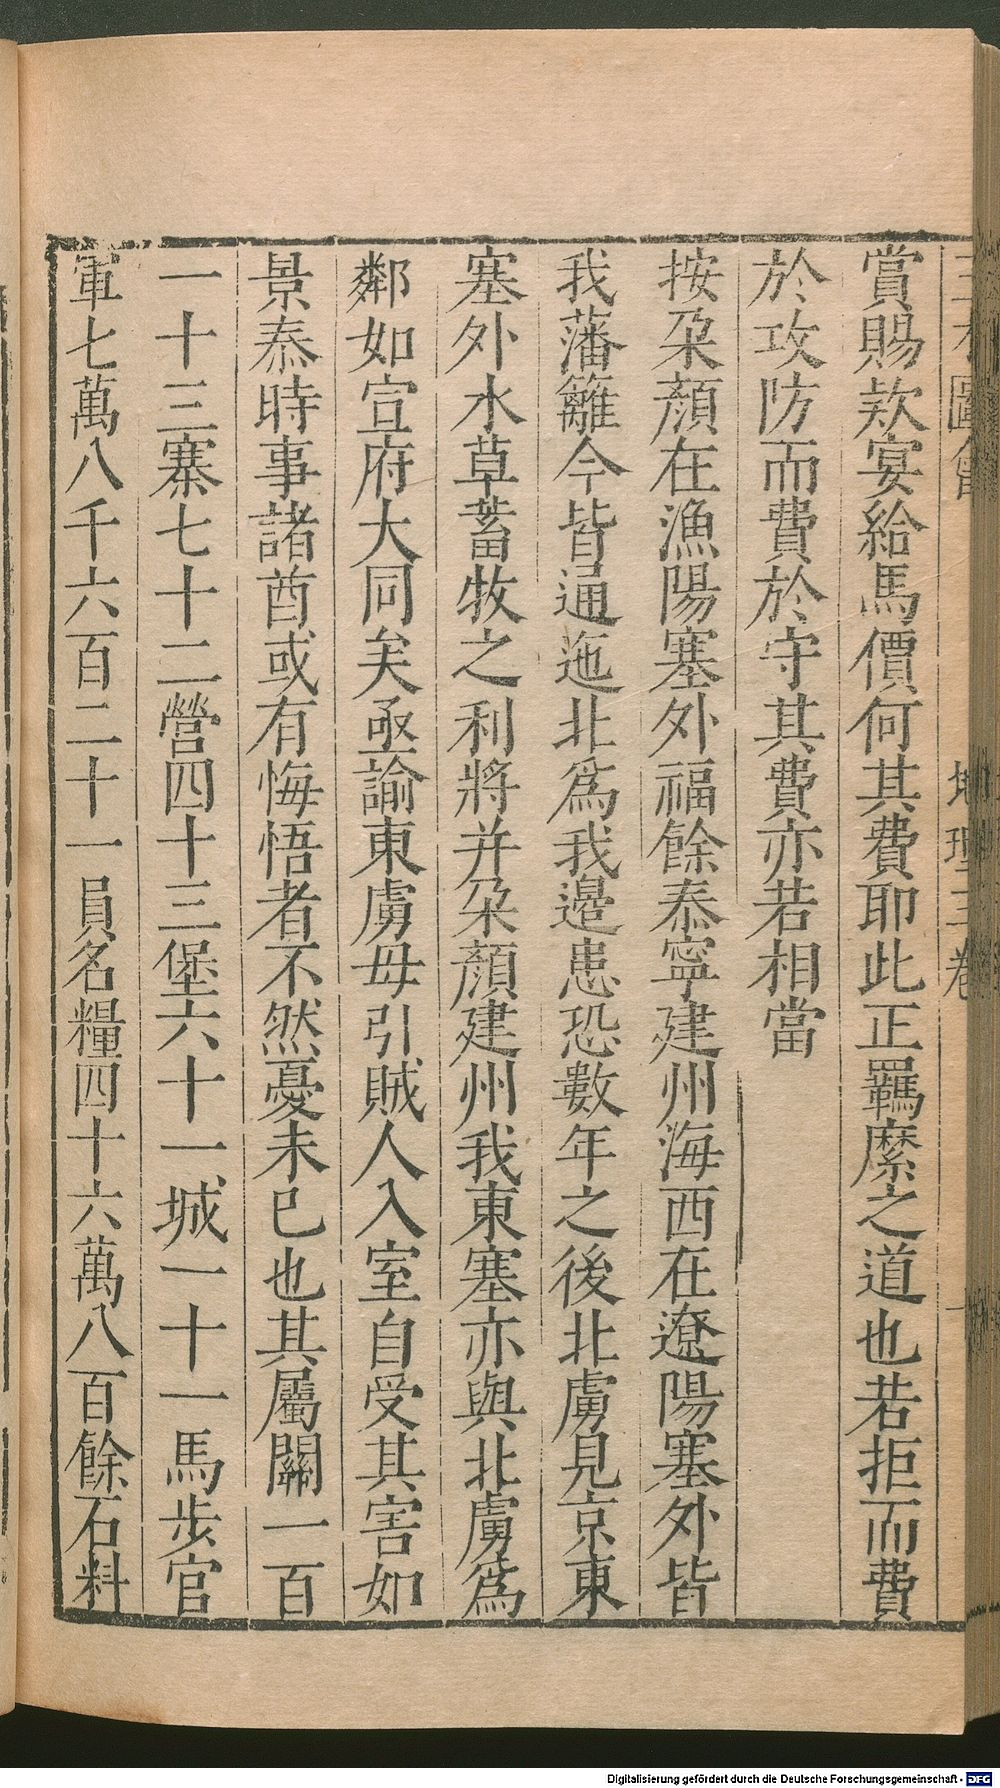 賞賜欵宴給馬價何其費耶此正羈縻之道也若拒而費
於攻防而費於守其費亦若相當
按朶顏在漁陽塞外福餘泰寧建州海西在遼陽塞外皆
我藩籬今皆通迤北爲我邊患恐數年之後北虜見京東
塞外水草蓄牧之利將并朶顏建州我東塞亦與北虜爲
鄰如宣府大同矣亟諭東虜毋引賊人入室自受其害如
景泰時事諸酋或有悔悟者不然憂未已也其屬關一百
一十三寨七十二營四十三堡六十一城一十一馬步官
軍七萬八千六百二十一員名糧四十六萬八百餘石料
Digitalisierung gefördert durch die Deutsche Forschungsgemeinschaft - DFG